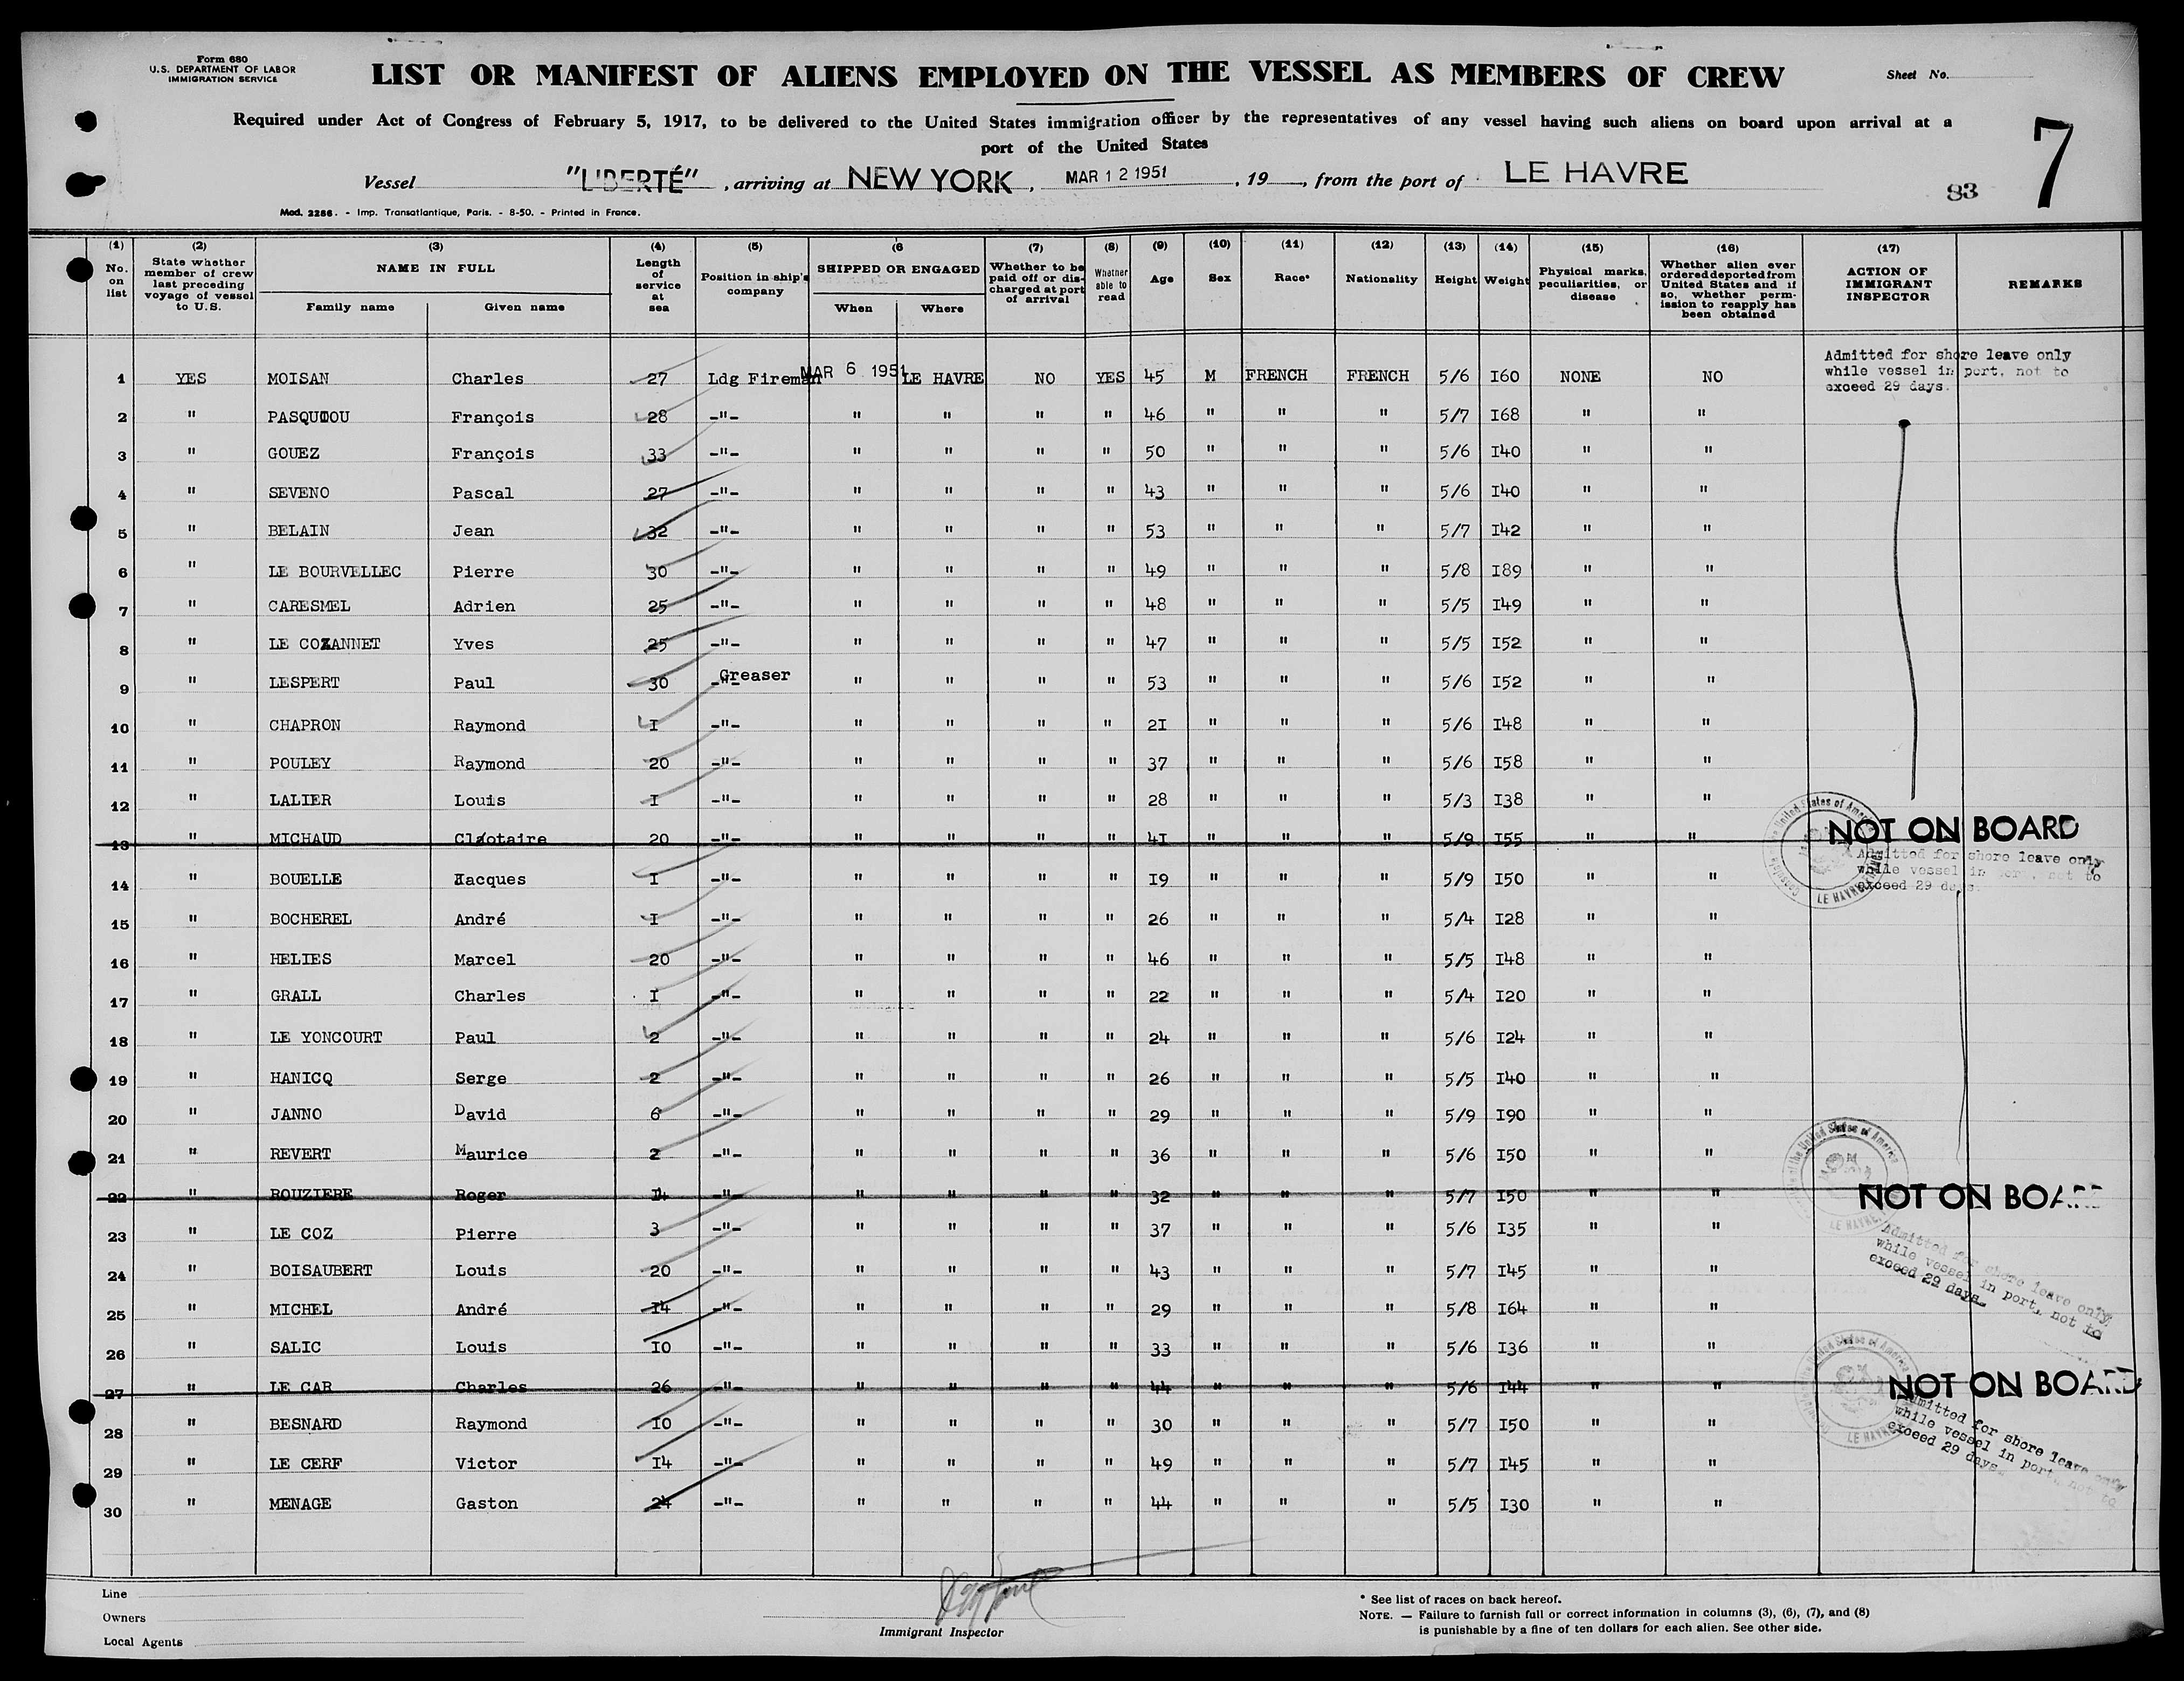 Form 680
U.S. DEPARTMENT OF LABOR
IMMIGRATION SERVICE
LIST OR MANIFEST OF ALIENS EMPLOYED ON THE VESSEL AS MEMBERS OF CREW
Sheet No.
Required under Act of Congress of February 5, 1917, to be delivered to the United States immigration officer by the representatives of any vessel having such aliens on board upon arrival at a
port of the United States
7
Vessel "LIBERTÉ", arriving at NEW YORK, MAR 12 1951, 19 , from the port of LE HAVRE
83
Mod. 2286. - Imp. Transatlantique, Paris. - 8-50. - Printed in France.
(1) No. on list (2) State whether member of crew last preceding voyage of vessel to U.S. (3) NAME IN FULL Family name Given name (4) Length of service at sea (5) Position in ship's company (6 SHIPPED OR ENGAGED When Where (7) Whether to be paid off or discharged at port of arrival (8) Whether able to read (9) Age (10) Sex (11) Race* (12) Nationality (13) Height (14) Weight (15) Physical marks, peculiarities, or disease (16) Whether alien ever ordered deported from United States and if so, whether permission to reapply has been obtained (17) ACTION OF IMMIGRANT INSPECTOR REMARKS
1 YES MOISAN Charles 27 Ldg Fireman MAR 6 1951 LE HAVRE NO YES 45 M FRENCH FRENCH 5/6 I60 NONE NO Admitted for shore leave only while vessel in port, not to exceed 29 days.
2 " PASQUIOU François 28 -"- " " " " 46 " " " 5/7 I68 " "
3 " GOUEZ François 33 -"- " " " " 50 " " " 5/6 I40 " "
4 " SEVENO Pascal 27 -"- " " " " 43 " " " 5/6 I40 " "
5 " BELAIN Jean 32 -"- " " " " 53 " " " 5/7 I42 " "
6 " LE BOURVELLEC Pierre 30 -"- " " " " 49 " " " 5/8 I89 " "
7 " CARESMEL Adrien 25 -"- " " " " 48 " " " 5/5 I49 " "
8 " LE COZANNET Yves 25 -"- " " " " 47 " " " 5/5 I52 " "
9 " LESPERT Paul 30 -"- Greaser " " " " 53 " " " 5/6 I52 " "
10 " CHAPRON Raymond I -"- " " " " 2I " " " 5/6 I48 " "
11 " POULEY Raymond 20 -"- " " " " 37 " " " 5/6 I58 " "
12 " LALIER Louis I -"- " " " " 28 " " " 5/3 I38 " "
13 " MICHAUD Clotaire 20 -"- " " " " 4I " " " 5/9 I55 " " NOT ON BOARD
Admitted for shore leave only while vessel in port, not to exceed 29 days.
14 " BOUELLE Jacques I -"- " " " " I9 " " " 5/9 I50 " "
15 " BOCHEREL André I -"- " " " " 26 " " " 5/4 I28 " "
16 " HELIES Marcel 20 -"- " " " " 46 " " " 5/5 I48 " "
17 " GRALL Charles I -"- " " " " 22 " " " 5/4 I20 " "
18 " LE YONCOURT Paul 2 -"- " " " " 24 " " " 5/6 I24 " "
19 " HANICQ Serge 2 -"- " " " " 26 " " " 5/5 I40 " "
20 " JANNO David 6 -"- " " " " 29 " " " 5/9 I90 " "
21 " REVERT Maurice 2 -"- " " " " 36 " " " 5/6 I50 " "
22 " ROUZIERE Roger I4 -"- " " " " 32 " " " 5/7 I50 " " NOT ON BOARD
23 " LE COZ Pierre 3 -"- " " " " 37 " " " 5/6 I35 " "
Admitted for shore leave only while vessel in port, not to exceed 29 days.
24 " BOISAUBERT Louis 20 -"- " " " " 43 " " " 5/7 I45 " "
25 " MICHEL André I4 -"- " " " " 29 " " " 5/8 I64 " "
26 " SALIC Louis I0 -"- " " " " 33 " " " 5/6 I36 " "
27 " LE CAR Charles 26 -"- " " " " 44 " " " 5/6 I44 " " NOT ON BOARD
Admitted for shore leave only while vessel in port, not to exceed 29 days.
28 " BESNARD Raymond I0 -"- " " " " 30 " " " 5/7 I50 " "
29 " LE CERF Victor I4 -"- " " " " 49 " " " 5/7 I45 " "
30 " MENAGE Gaston 24 -"- " " " " 44 " " " 5/5 I30 " "
Line
Owners
Local Agents
Immigrant Inspector
* See list of races on back hereof.
NOTE. — Failure to furnish full or correct information in columns (3), (6), (7), and (8)
is punishable by a fine of ten dollars for each alien. See other side.